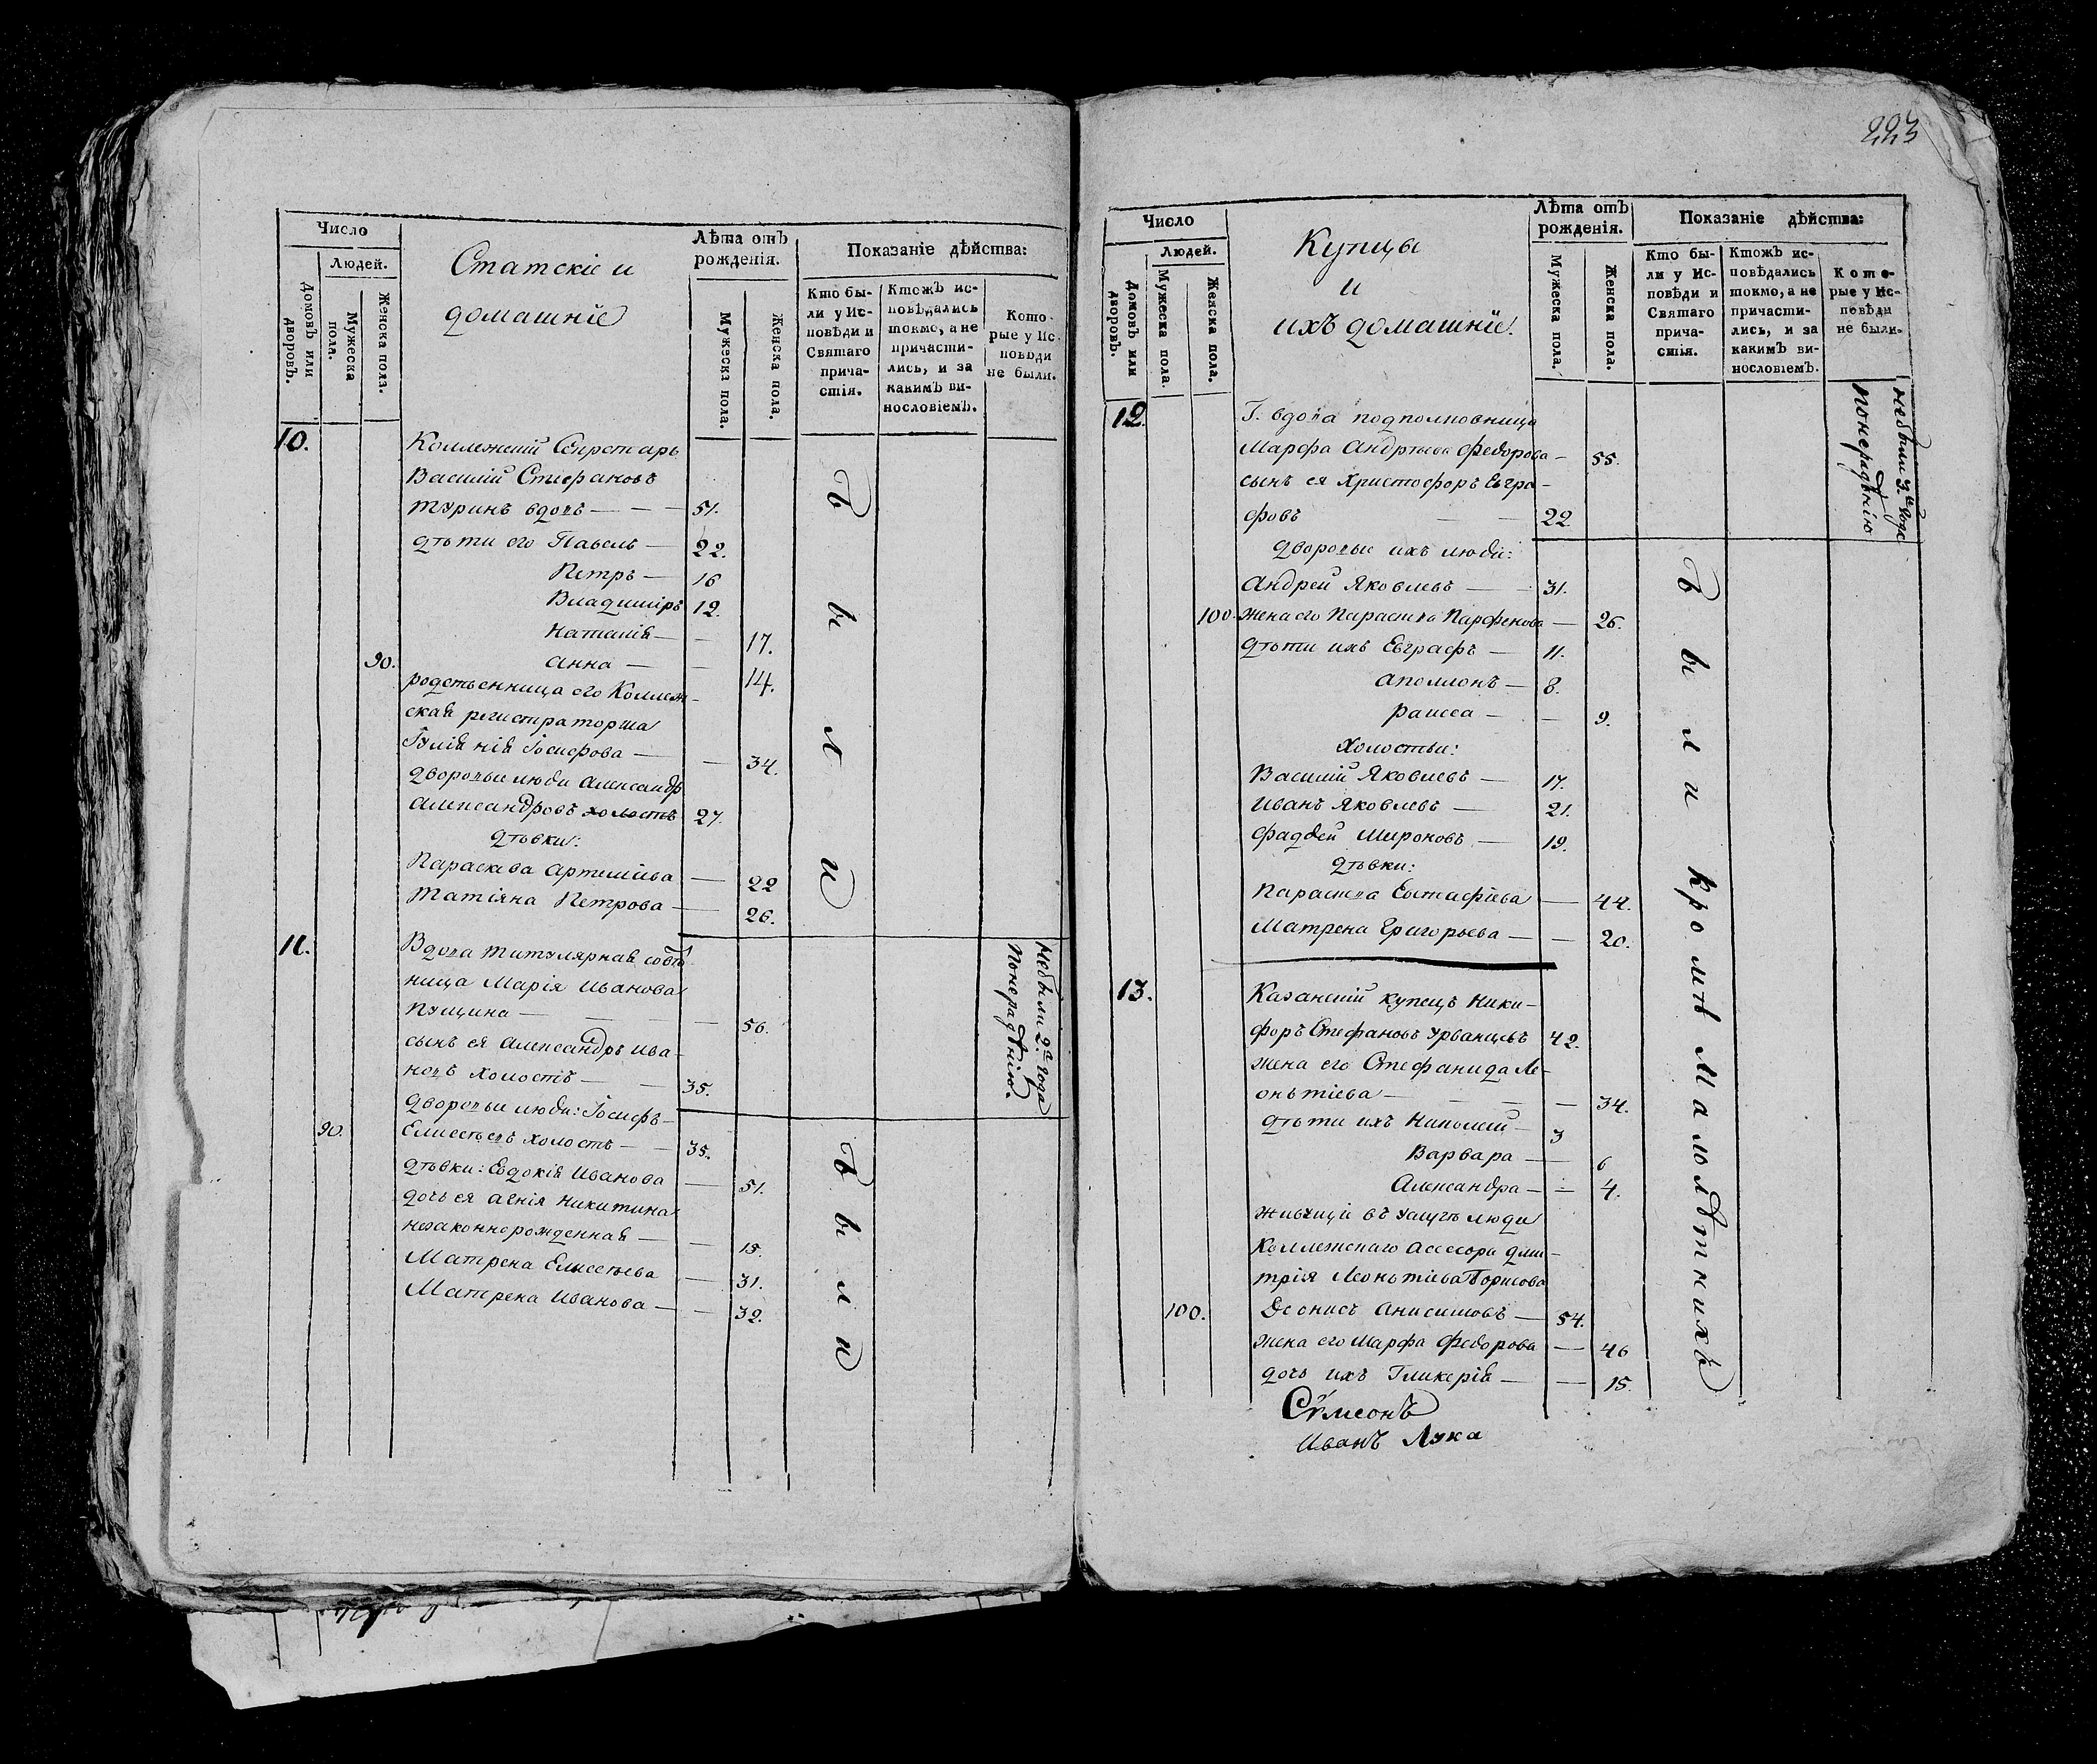 Число
Людей.
Домовъ или дворовъ.
Мужеска пола.
Женска пола.
Статскіе и
домашніе
Лѣта отъ
рожденія.
Мужеска пола.
Женска пола.
Показаніе дѣйства:
Кто бы-
ли у Ис-
повѣди и
Святаго
прича-
стія.
Ктожъ ис-
повѣдались
токмо, а не
причасти-
лись, и за
какимъ ви-
нословіемъ.
Кото-
рые у Ис-
повѣди
не были.
10. Коллежскій Секретарь
Василій Стефановъ
Туринъ вдовъ — — — 51.
дѣти его Павелъ — 22.
Петръ — 16
Владиміръ 12.
Наталія — — 17.
90. Анна — — 14.
родственница его Коллеж-
ская регистраторша
Іуліанія Іосифова — — 34.
дворовые люди Александр
Александровъ холостъ 27.
дѣвки:
Параскева Артеміева — 22
Татіяна Петрова — 26.
Были
11. Вдова титулярная совѣт
ница Марія Иванова
Пущина — — — — 56.
сынъ ея Александръ Ива-
новъ холостъ — — 35.
Небыли 2а. года
понерадѣнію.
дворовые люди: Іосифъ —
90. Елисеевъ холостъ — — 35.
дѣвки: Евдокія Иванова — 51.
дочь ея Агнія Никитина
незаконнорожденная — — 15.
Матрена Елисеева — 31.
Матрена Иванова — — 32.
Были
223
Число
Людей.
Домовъ или дворовъ.
Мужеска пола.
Женска пола.
Купцы
и
ихъ домашніе.
Лѣта отъ
рожденія.
Мужеска пола.
Женска пола.
Показаніе дѣйства:
Кто бы-
ли у Ис-
повѣди и
Святаго
прича-
стія.
Ктожъ ис-
повѣдались
токмо, а не
причасти-
лись, и за
какимъ ви-
нословіемъ.
Кото-
рые у Ис-
повѣди
не были.
12. Г. вдова подполковница
Марфа Андреева Федорова — 55.
сынъ ея Христофоръ Евгра-
фовъ — — 22
Небыли года
понерадѣнію
дворовые ихъ люди:
Андрей Яковлевъ — — 31.
100. жена его Параскева Парфенова — 26.
дѣти ихъ Евграфъ — 11.
Аполлонъ — 8.
Раисса — — 9.
Холостыи:
Василій Яковлевъ — 17.
Иванъ Яковлевъ — 21.
Фаддей Мироновъ — 19.
дѣвки:
Параскева Евстафіева — 44.
Матрена Григорьева — — 20.
13. Казанскій купецъ Ники-
форъ Стефановъ Урванцевъ 42.
жена его Стефанида Ле-
онтіева — — — — 34.
дѣти ихъ Николай — 3
Варвара — — 6
Александра — — 4.
живущіе въ услугѣ люди
Коллежскаго Ассесора Дми-
трія Леонтіева Борисова
100. Деонисъ Анисимовъ — 54.
жена его Марфа Федорова — 46
дочь ихъ Гликерія — — 15.
Были кромѣ Малолѣтнихъ
Сѵмеонъ
Иванъ Лука